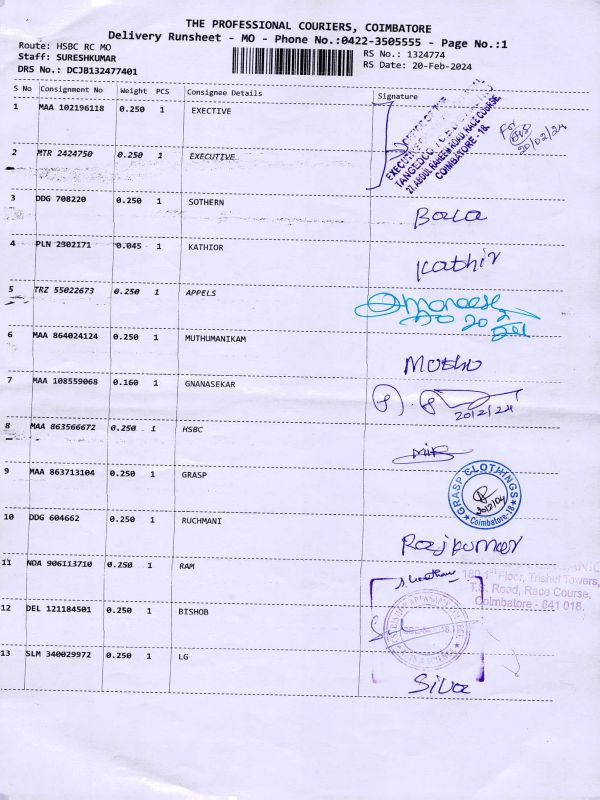 THE PROFESSIONAL COURIERS, COIMBATORE
Delivery Runsheet - MO - Phone No.:0422-3505555 - Page No.:1
Route: HSBC RC MO
RS No.: 1324774
Staff: SURESHKUMAR
RS Date: 20-Feb-2024
DRS No.: DCJB132477401
S No Consignment No Weight PCS Consignee Details Signature
1 MAA 102196118 0.250 1 EXECTIVE
EXECUTIVE
TANGEDCO
27, ABDUL RAHEEM ROAD, RACE COURSE
COIMBATORE - 18.
For
20/02/24
2 MTR 2424750 0.250 1 EXECUTIVE
3 DDG 708220 0.250 1 SOTHERN
Bala
4 PLN 2302171 0.045 1 KATHIOR
Kathir
5 TRZ 55022673 0.250 1 APPELS
6 MAA 864024124 0.250 1 MUTHUMANIKAM
7 MAA 108559068 0.160 1 GNANASEKAR
20/2/24
8 MAA 863566672 0.250 1 HSBC
9 MAA 863713104 0.250 1 GRASP
GRASP CLOTHINGS
Coimbatore-18
10 DDG 604662 0.250 1 RUCHMANI
Rajkumar
11 NDA 906113710 0.250 1 RAM
180 1st Floor, Trishul Towers,
Road, Race Course,
Coimbatore - 641 018.
12 DEL 121184501 0.250 1 BISHOB
13 SLM 340029972 0.250 1 LG
Siva